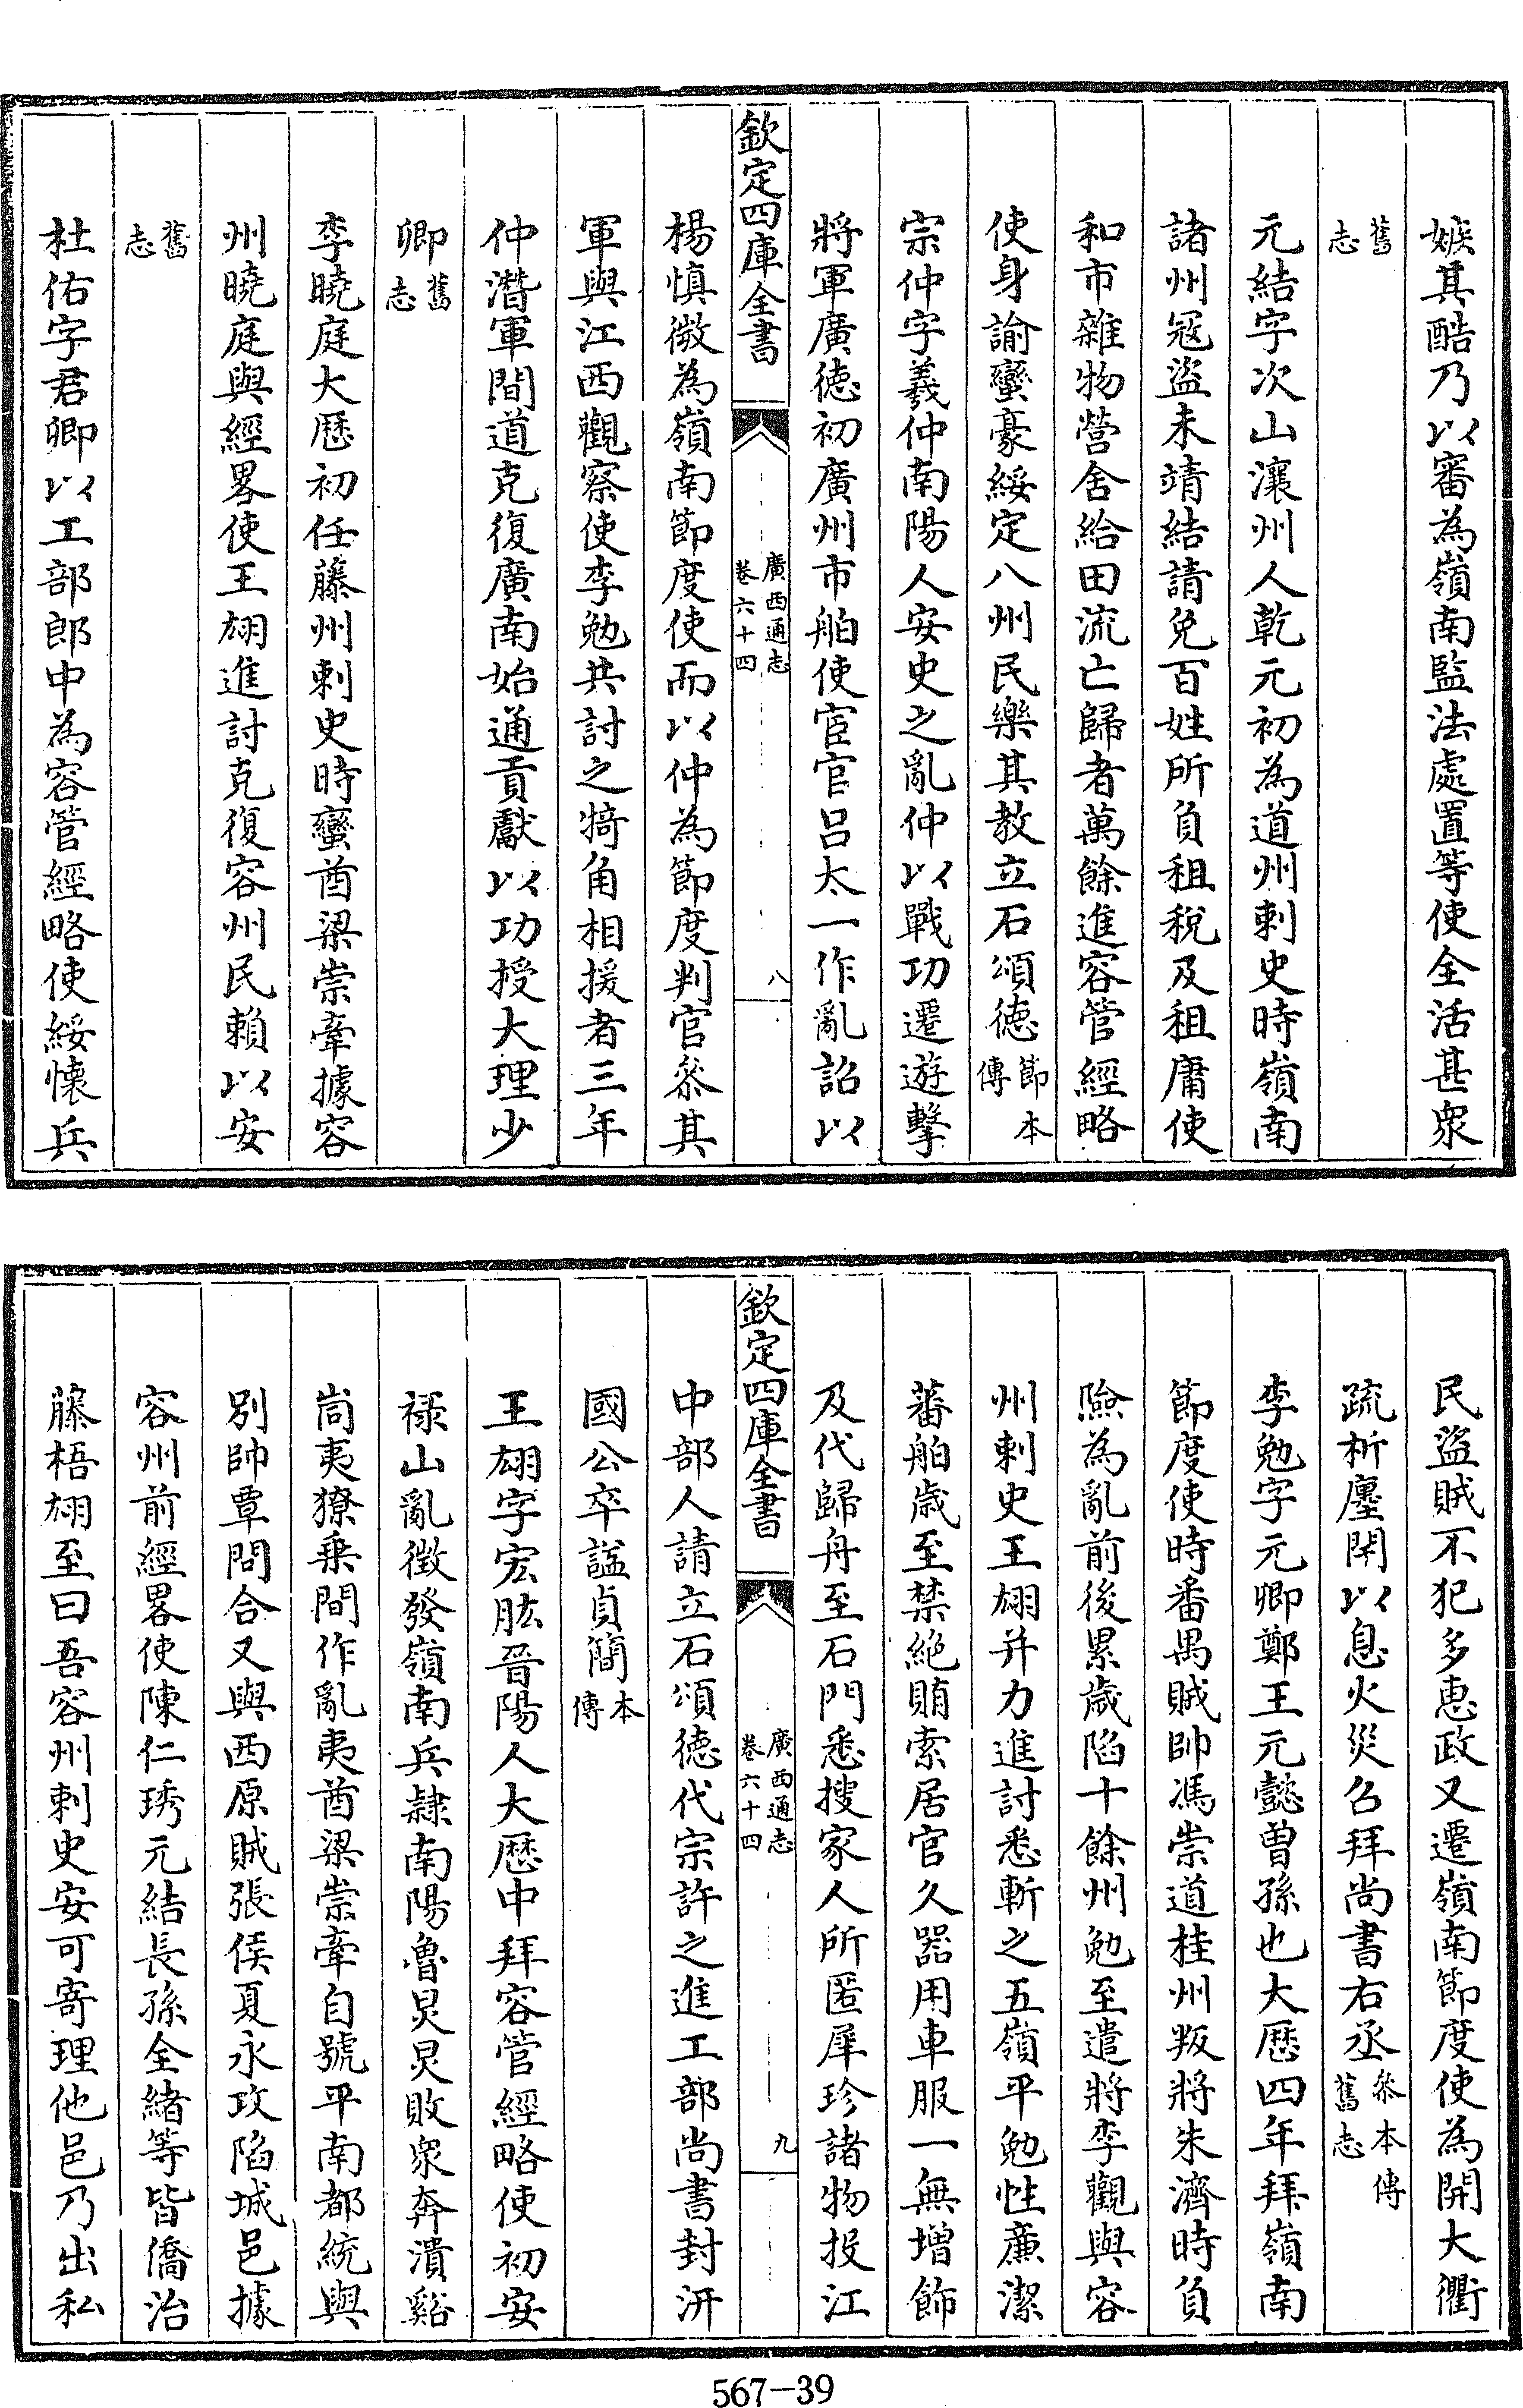 嫉其酷乃以審為嶺南監法處置等使全活甚衆
舊志
元結字次山瀼州人乾元初為道州刺史時嶺南
諸州冦盜未靖結請免百姓所負租稅及租庸使
和市雜物營舍給田流亡歸者萬餘進容管經略
使身諭蠻豪綏定八州民樂其教立石頌徳節本傳
宗仲字羲仲南陽人安史之亂仲以戰功遷遊擊
將軍廣徳初廣州市舶使宦官呂太一作亂詔以
欽定四庫全書
廣西通志
卷六十四
八
楊慎微為嶺南節度使而以仲為節度判官叅其
軍與江西觀察使李勉共討之犄角相援者三年
仲潛軍間道克復廣南始通貢獻以功授大理少
卿舊志
李曉庭大厯初任藤州刺史時蠻酋梁崇牽據容
州曉庭與經畧使王翃進討克復容州民賴以安
舊志
杜佑字君卿以工部郎中為容管經略使綏懷兵
民盜賊不犯多惠政又遷嶺南節度使為開大衢
疏析廛閈以息火災召拜尚書右丞叅本傳舊志
李勉字元卿鄭王元懿曽孫也大厯四年拜嶺南
節度使時番禺賊帥馮崇道桂州叛將朱濟時負
險為亂前後累歲陷十餘州勉至遣將李觀與容
州刺史王翃并力進討悉斬之五嶺平勉性廉潔
蕃舶歲至禁絶賄索居官久器用車服一無增飾
及代歸舟至石門悉搜家人所匿犀珍諸物投江
欽定四庫全書
廣西通志
卷六十四
九
中部人請立石頌徳代宗許之進工部尚書封汧
國公卒諡貞簡本傳
王翃字宏肱晉陽人大厯中拜容管經略使初安
禄山亂徵發嶺南兵隷南陽魯炅炅敗衆奔潰谿
峝夷獠乗間作亂夷酋梁崇牽自號平南都統與
別帥覃問合又與西原賊張侯夏永攻陷城邑據
容州前經畧使陳仁琇元結長孫全緒等皆僑治
藤梧翃至曰吾容州刺史安可寄理他邑乃出私
567-39